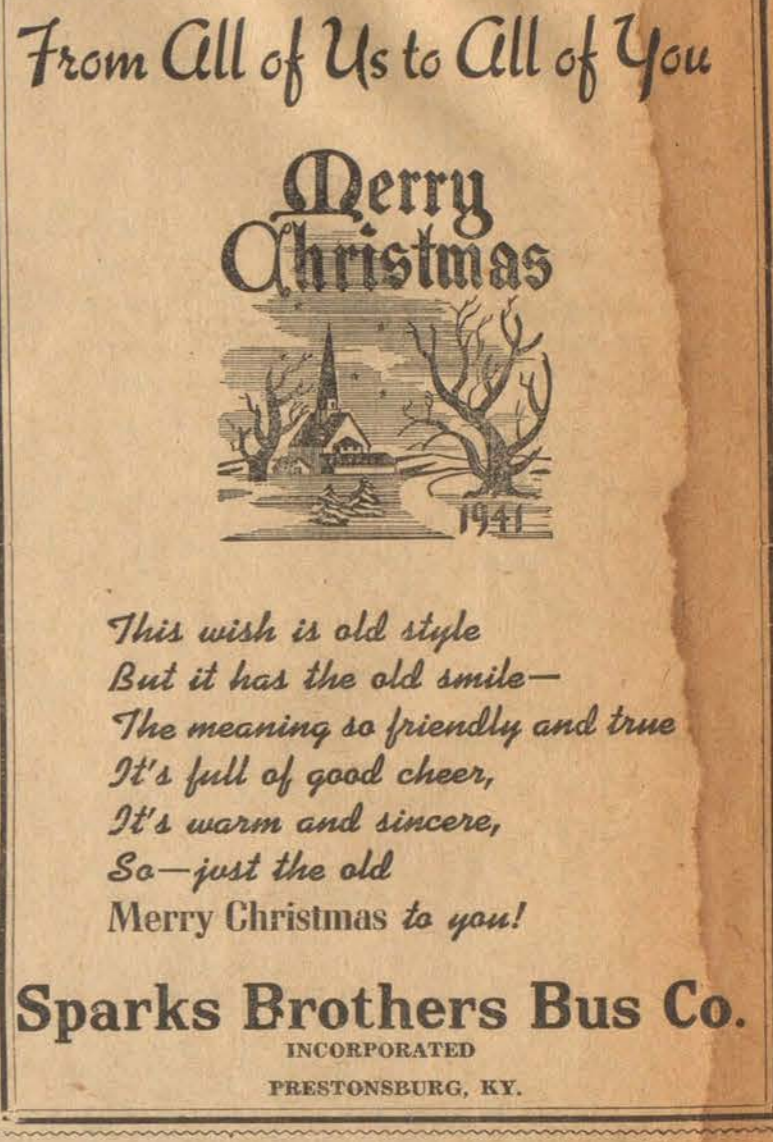 From All of Us to All of You
Merry
Christmas
1941
This wish is old style
But it has the old smile—
The meaning so friendly and true
It's full of good cheer,
It's warm and sincere,
So—just the old
Merry Christmas to you!
Sparks Brothers Bus Co.
INCORPORATED
PRESTONSBURG, KY.